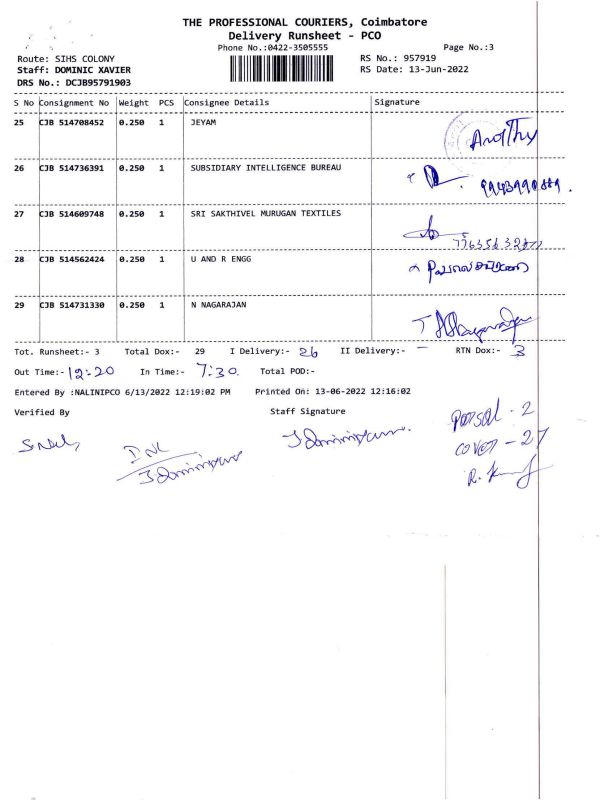 THE PROFESSIONAL COURIERS, Coimbatore
Delivery Runsheet - PCO
Phone No.:0422-3505555 Page No.:3
Route: SIHS COLONY RS No.: 957919
Staff: DOMINIC XAVIER RS Date: 13-Jun-2022
DRS No.: DCJB95791903
S No Consignment No Weight PCS Consignee Details Signature
25 CJB 514708452 0.250 1 JEYAM
26 CJB 514736391 0.250 1 SUBSIDIARY INTELLIGENCE BUREAU
27 CJB 514609748 0.250 1 SRI SAKTHIVEL MURUGAN TEXTILES
28 CJB 514562424 0.250 1 U AND R ENGG
29 CJB 514731330 0.250 1 N NAGARAJAN
Tot. Runsheet:- 3 Total Dox:- 29 I Delivery:- 26 II Delivery:- - RTN Dox:- 3
Out Time:- 12:20 In Time:- 7:30 Total POD:-
Entered By :NALINIPCO 6/13/2022 12:19:02 PM Printed On: 13-06-2022 12:16:02
Verified By Staff Signature
Parsal - 2
cover - 27